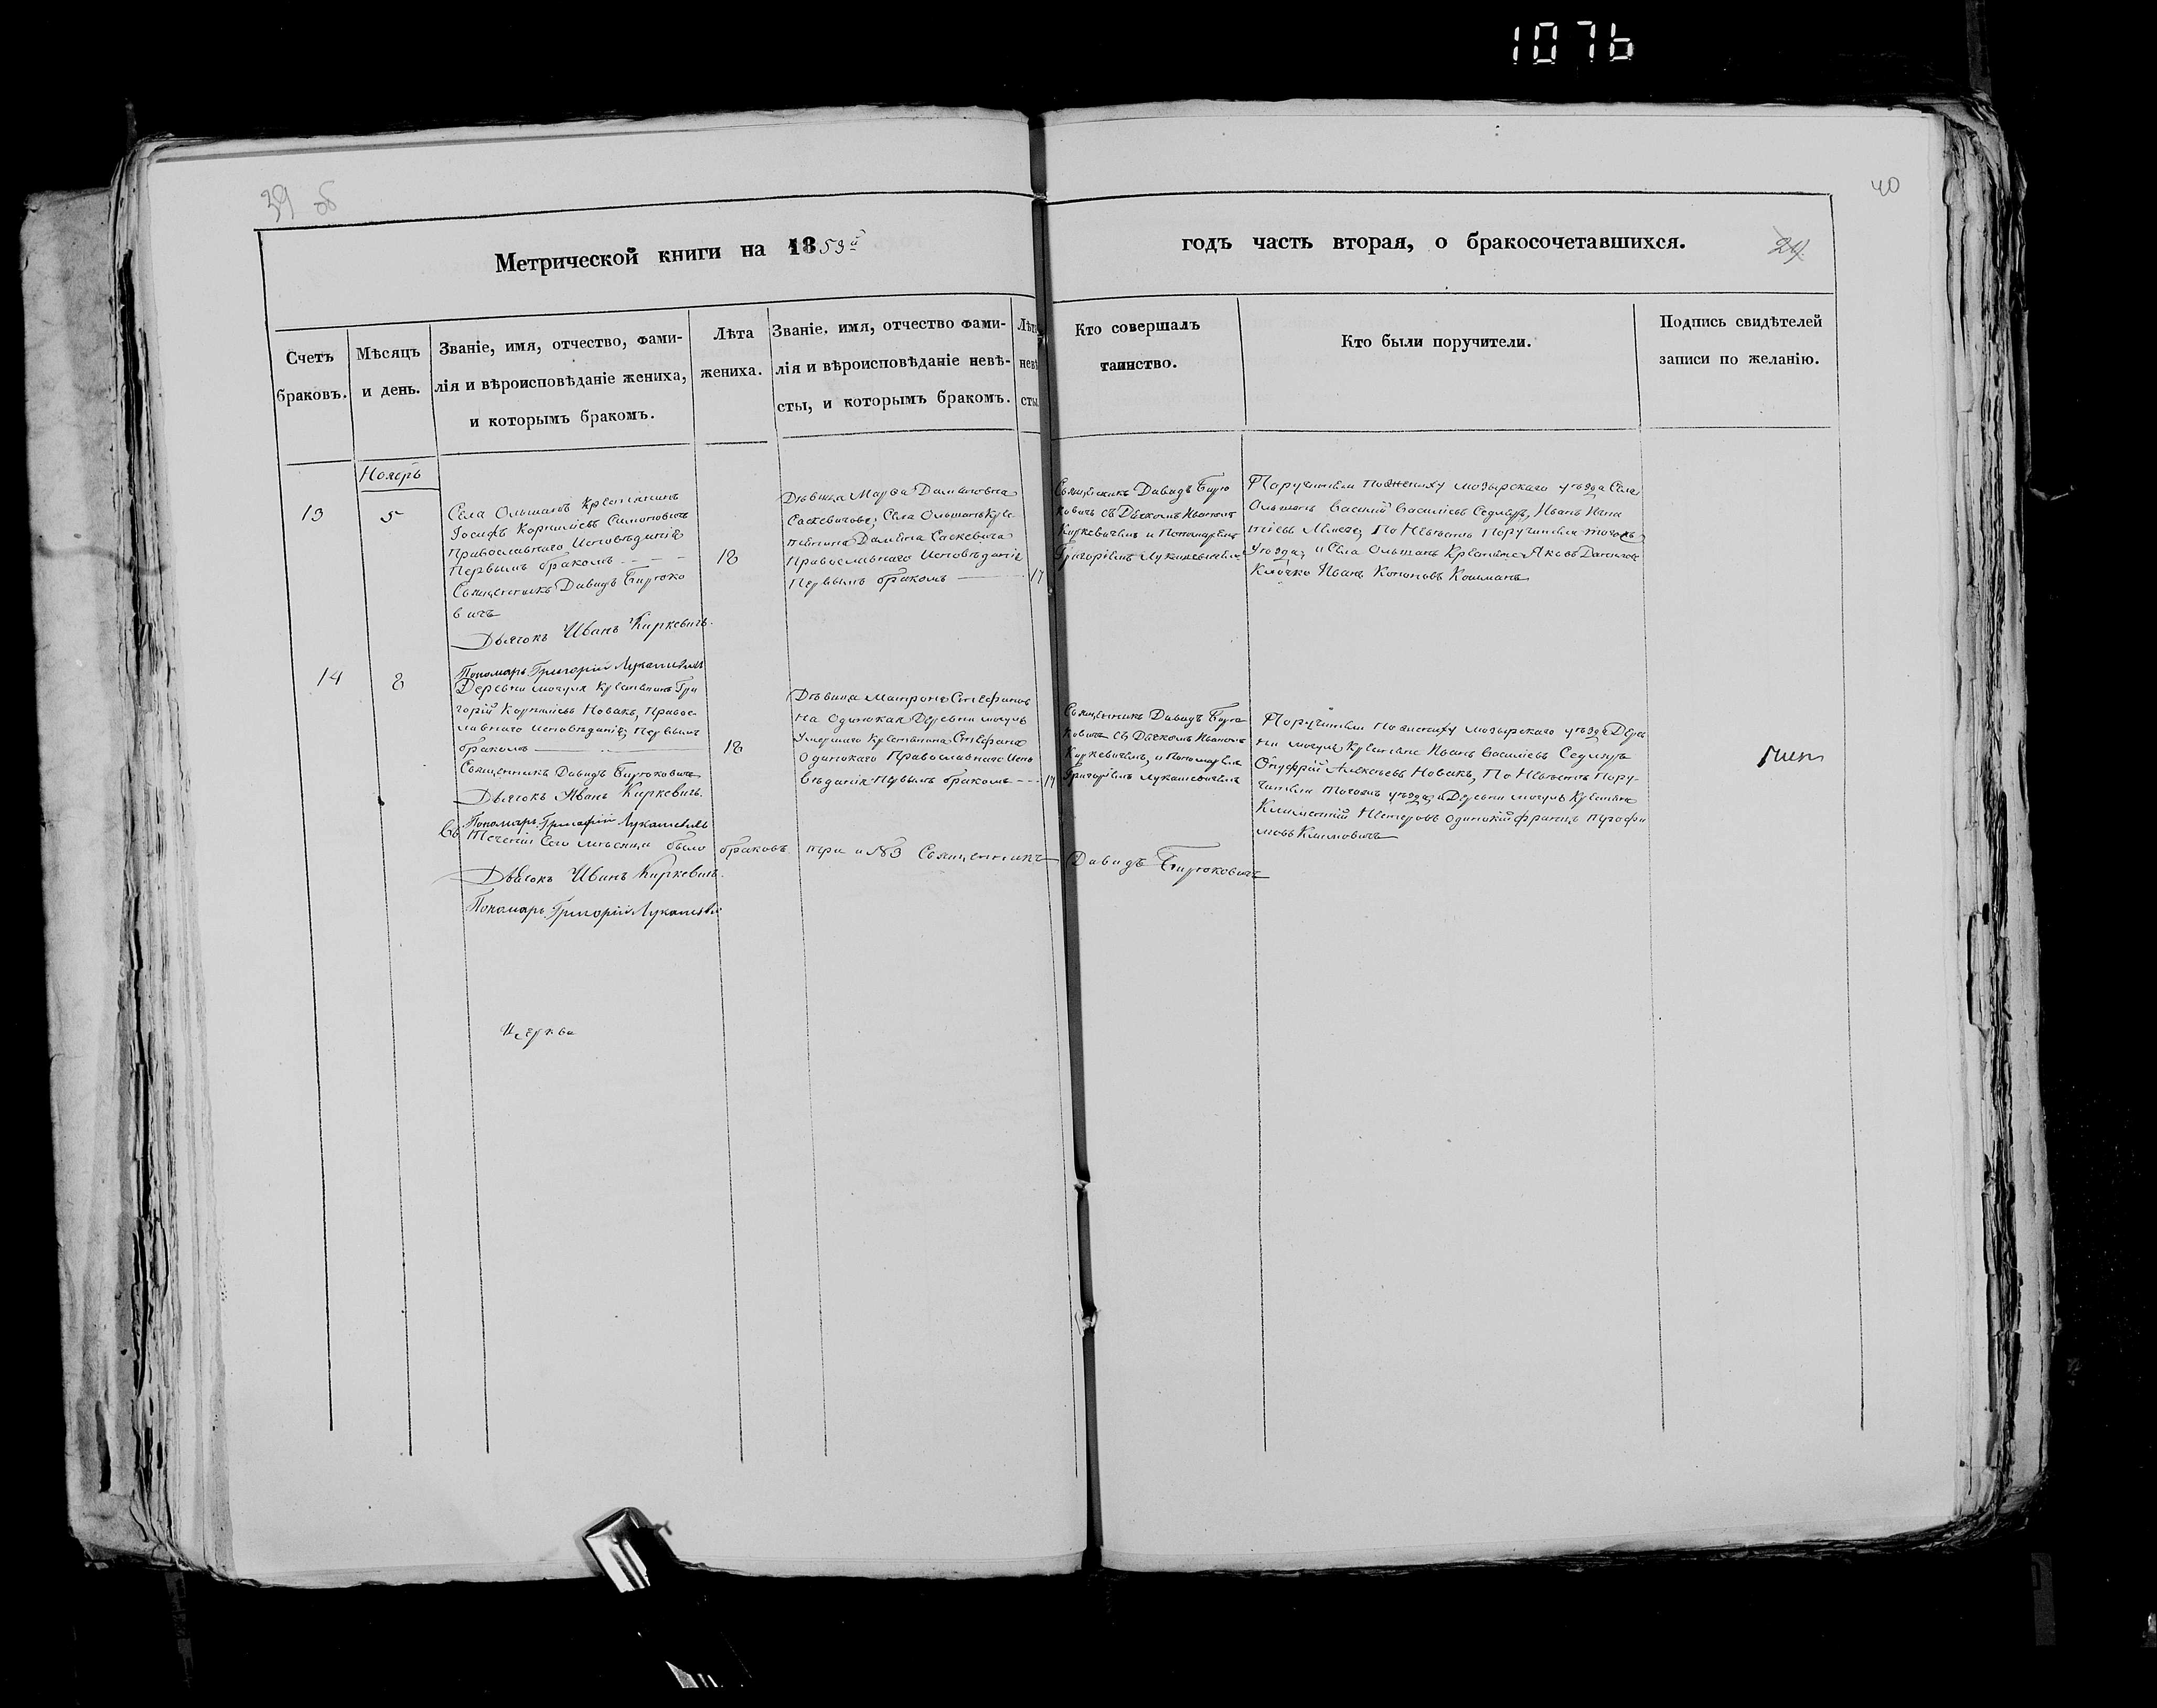 1076
39 об
40
Метрической книги на 1853й
годъ часть вторая, о бракосочетавшихся.
24
Счетъ
браковъ.
Мѣсяцъ
и день.
Званіе, имя, отчество, фами-
лія и вѣроисповѣданіе жениха,
и которымъ бракомъ.
Лѣта
жениха.
Званіе. имя, отчество фами-
лія и вѣроисповѣданіе невѣ-
сты, и которымъ бракомъ.
Лѣта
невѣ
сты
Кто совершалъ
таинство.
Кто были поручители.
Подпись свидѣтелей
записи по желанію.
Ноябрь
13
5
Села Ольшанъ Крестянинъ
Іосифъ Корнилієвъ Симоновичъ
Православнаго Исповѣданія
Первымъ бракомъ
Священникъ Давидъ Бируко
вичъ
Дьячокъ Иванъ Киркевичъ.
18
Дѣвица Марѳа Даміановна
Саскевичова, Села Ольшанъ Крес
тянина Даміяна Саскевича
Православнаго Исповѣданія
Первымъ бракомъ
17
Священникъ Давидъ Бирю
ковичъ съ Дьячкомъ Иваномъ
Киркевичемъ и Пономаремъ
Григоріемъ Лукашевичемъ
Поручители по жениху мозырскаго уѣзда Села
Ольшанъ Василій Василіевъ Седлуръ, Иванъ
По Невѣстѣ Поручители тогожъ
Уѣзда, и Села Ольшанъ Крестяне Яковъ
Клочко Иванъ Кононовъ Кошманъ
14
8
Пономарь Григорій Лукашевичъ
Деревни могуля Крестянинъ Гри
горій Корнилієвъ Новакъ, Правос-
лавнаго исповѣданія, Первымъ
бракомъ
Священникъ Давидъ Бируковичъ
Дьячокъ Иванъ Киркевичъ.
Пономарь Григорій Лукашевичъ
18
Дѣвица Матрона Стефанов
на Одинокая Деревни могуль
Умершаго Крестянина Стефана
Одинокаго Православнаго Испо
вѣданія Первымъ бракомъ
17
Священникъ Давидъ Бирю
ковичъ съ Дьячкомъ Иваномъ
Киркевичемъ, и Пономаремъ
Григоріемъ Лукашевичемъ
Поручители по жениху мозырскаго уѣзда Дерев
ни могуль Крестяне Иванъ Василіевъ Седлуръ
Онуфрій Алексѣевъ Новакъ, По Невѣстѣ Пору-
чители тогожъ уѣзда, и Деревни могуль Крестяне
Климентій Нестеровъ Одинокій францъ
Климовичъ
Въ Теченіи Сего мѣсяца было браковъ три и №3 Священникъ Давидъ Бируковичъ
Дьячокъ Иванъ Киркевичъ.
Пономарь Григорій Лукашевичъ
Церкви